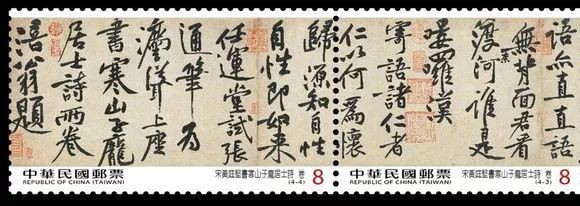 語亦直直語
無背面君看
渡奈河誰是
嘍羅漢
寄語諸仁者
仁以何為懷
歸源知自性
自性即如來
任運堂試張
通筆為
灋聳上座
書寒山子龐
居士詩兩卷
涪翁題
中華民國郵票
REPUBLIC OF CHINA (TAIWAN)
宋黃庭堅書寒山子龐居士詩 卷
(4-4)
8
中華民國郵票
REPUBLIC OF CHINA (TAIWAN)
宋黃庭堅書寒山子龐居士詩 卷
(4-3)
8